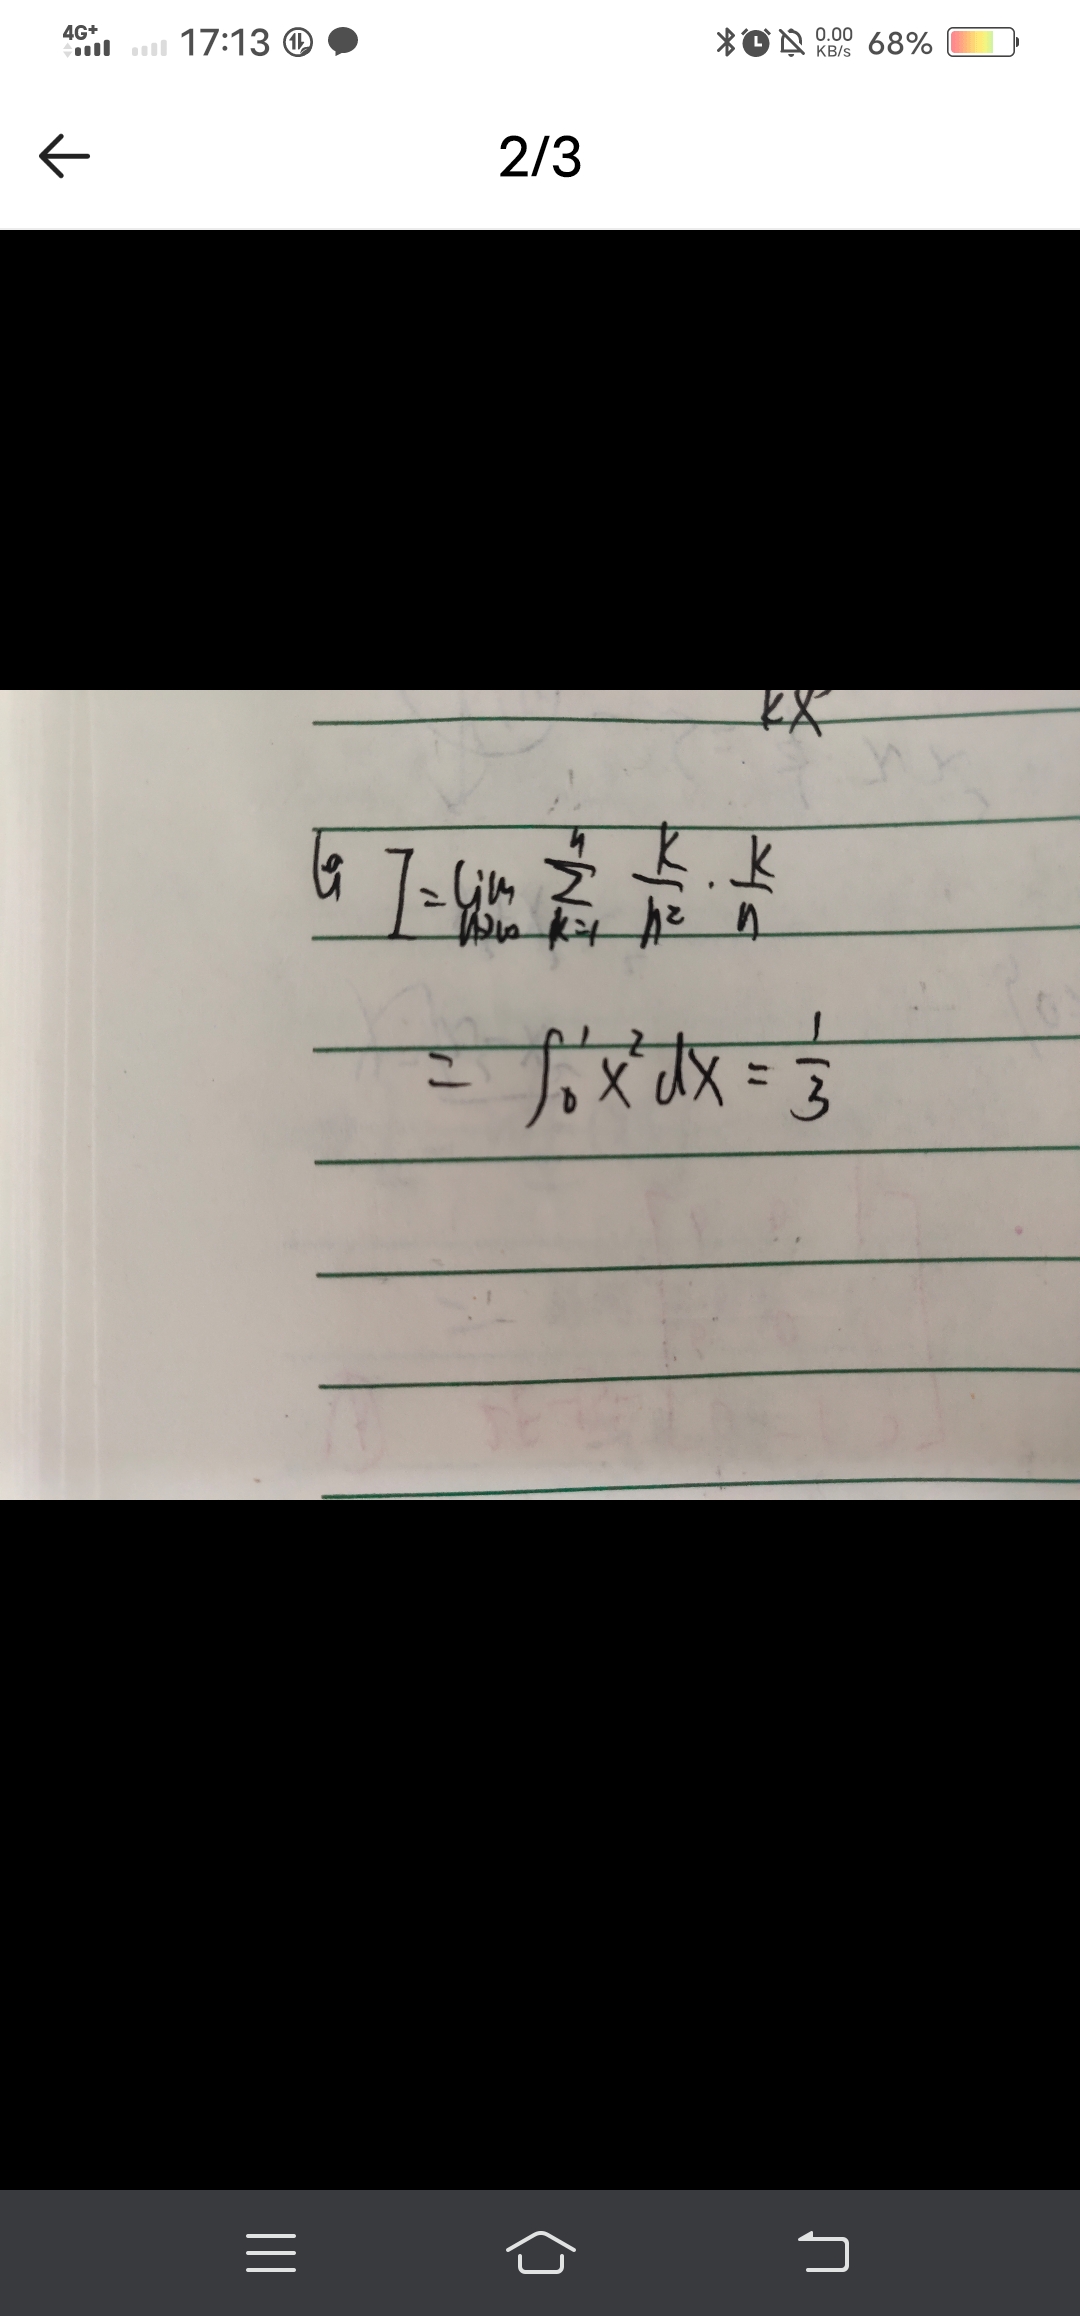 4G+ 17:13 0.00 KB/s 68%
2/3
kx
I = lim n→∞ ∑ k=1 n k/n² · k/n
= ∫₀¹ x² dx = 1/3